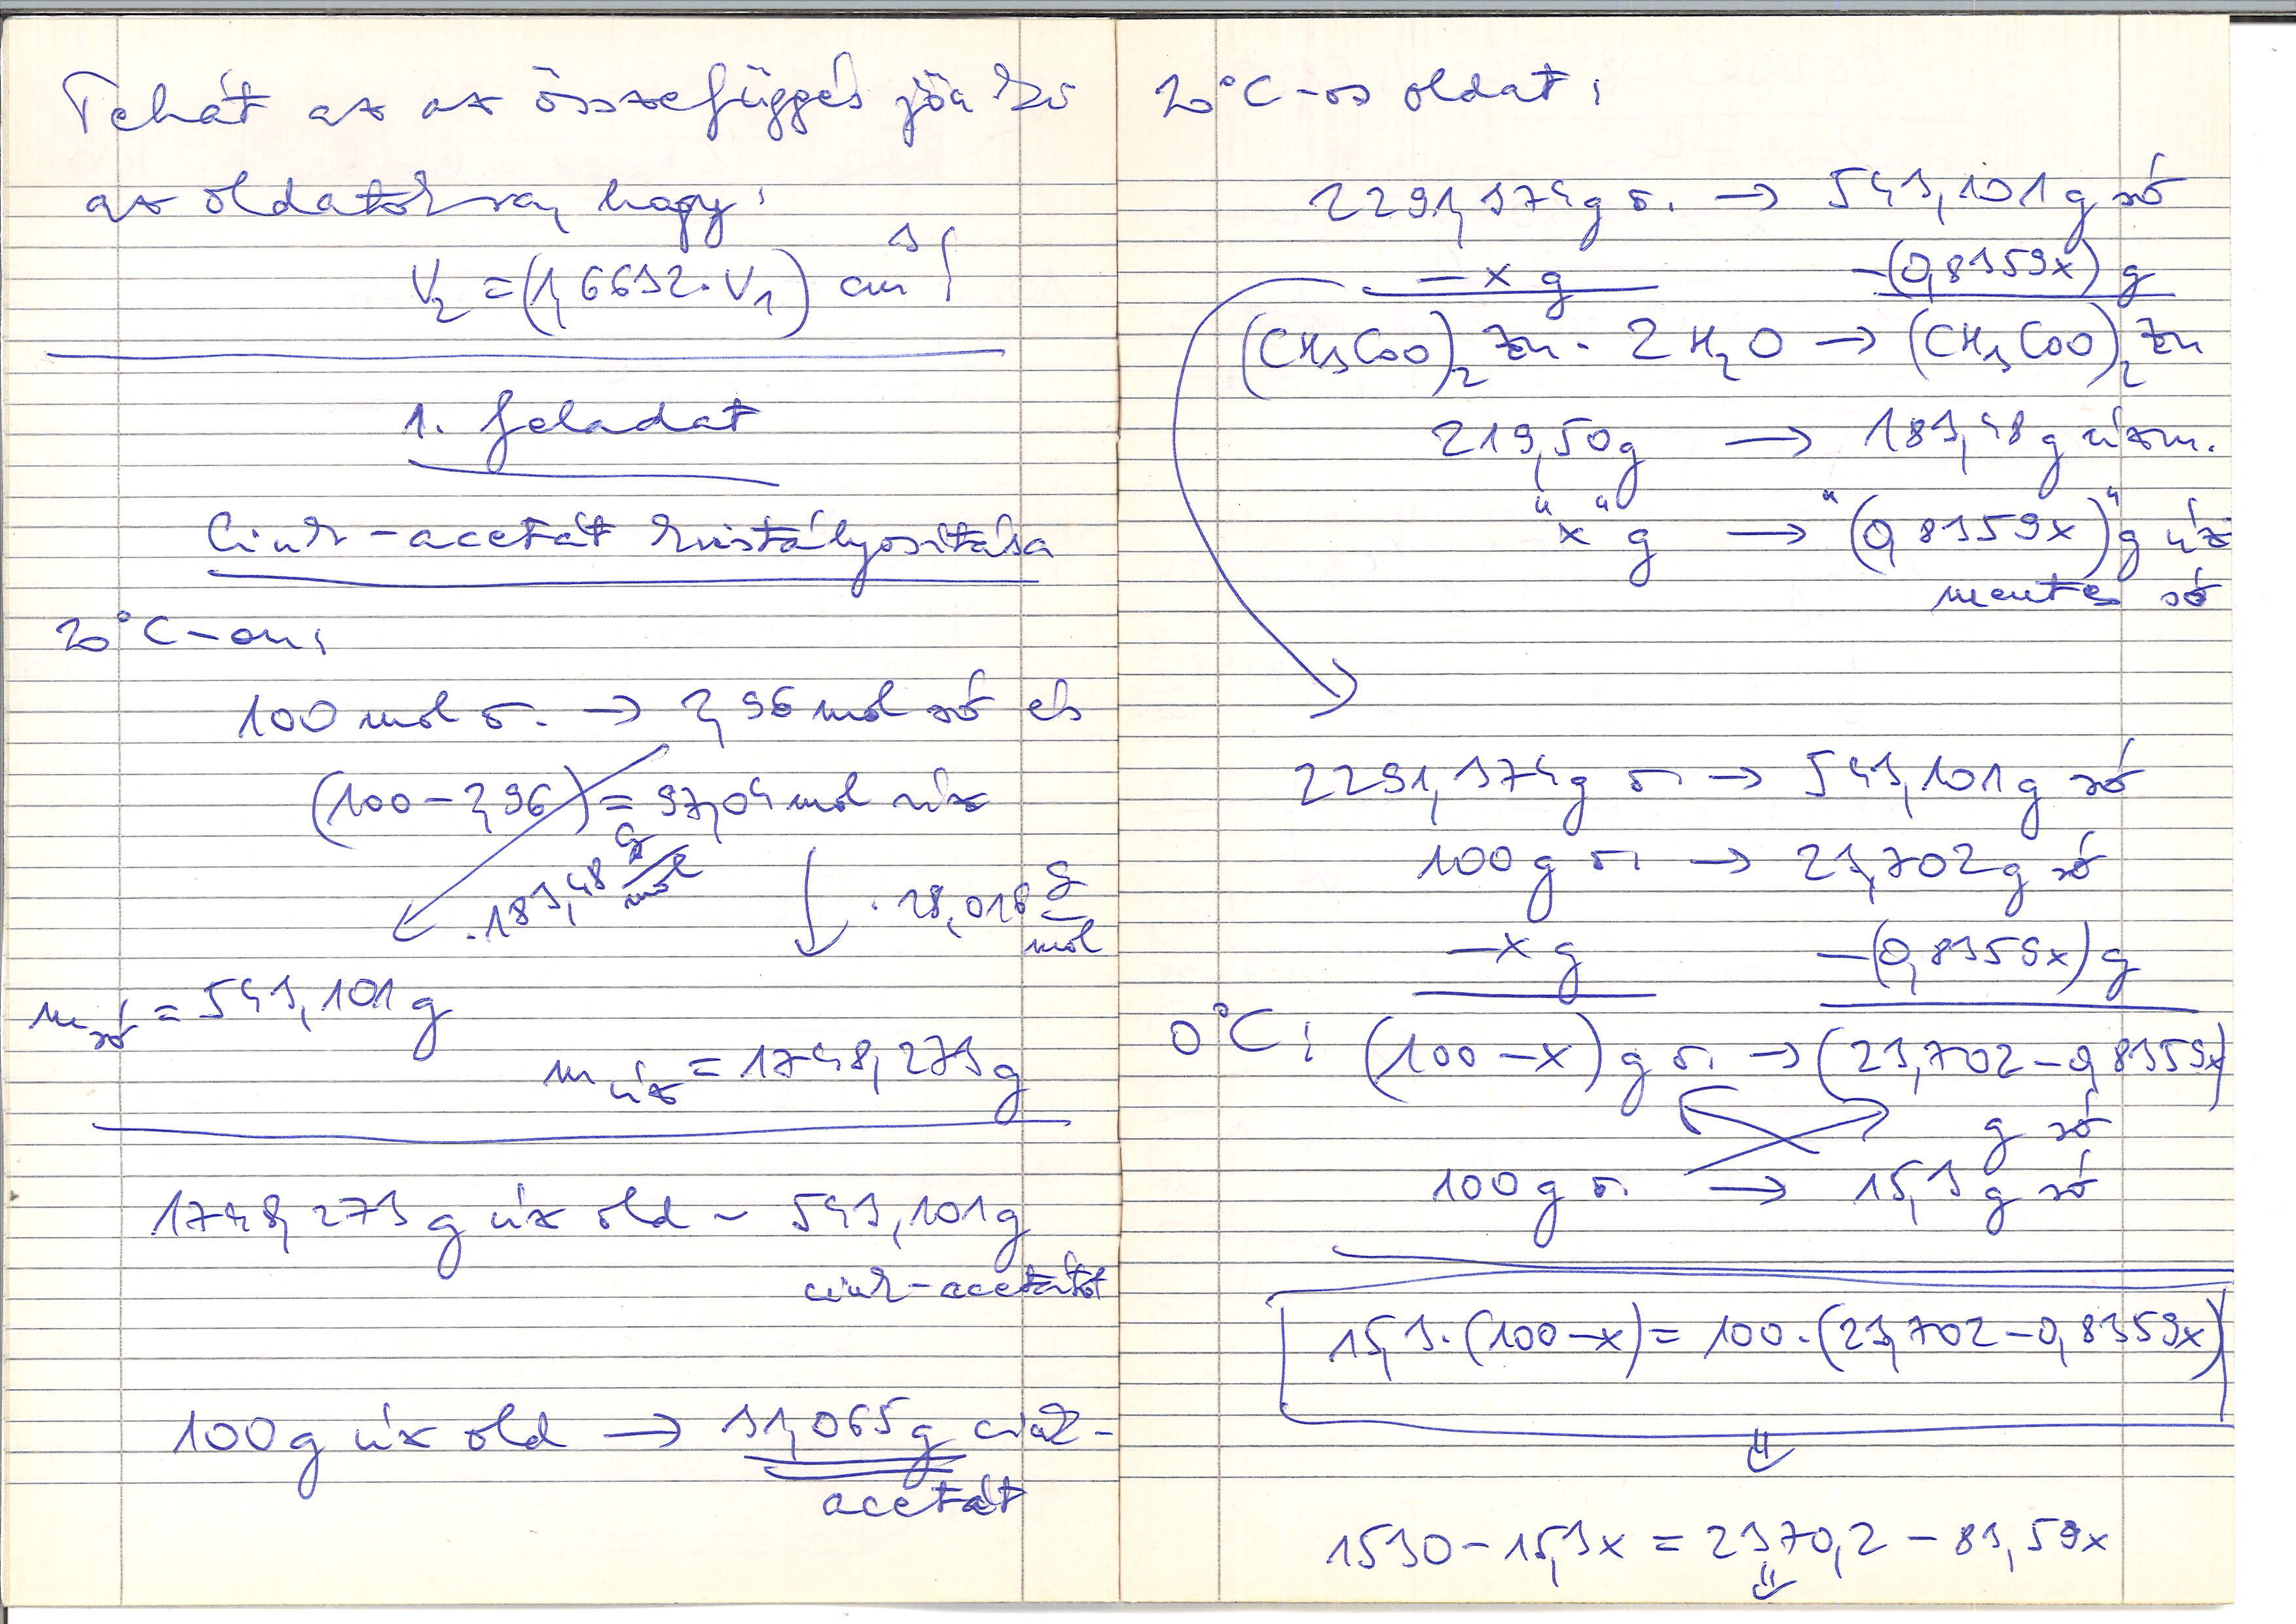 Tehát az az összefüggés jön ki
az oldatokra, hogy:
V₂ = (1,6692·V₁) cm³!
1. feladat
Cink-acetát kristályosítása
20°C-on:
100 mol o. → 2,96 mol só és
(100-2,96) = 97,04 mol víz
·183,48 g/mol
·18,016 g/mol
m só = 543,101 g
m víz = 1748,273 g
1748,273 g víz old ~ 543,101 g
cink-acetátot
100 g víz old → 31,065 g cink-
acetát
20°C-os oldat:
2291,374 g o. → 543,101 g só
-x g -(0,8359x) g
(CH₃COO)₂Zn · 2 H₂O → (CH₃COO)₂Zn
219,50 g → 183,48 g vízm.
"x" g → "(0,8359x)" g víz
mentes só
2291,374 g o. → 543,101 g só
100 g o. → 23,702 g só
-x g -(0,8359x) g
0°C: (100-x) g o. → (23,702-0,8359x)
g só
100 g o. → 15,3 g só
15,3·(100-x) = 100·(23,702-0,8359x)
⇓
1530-15,3x = 2370,2-83,59x
⇓